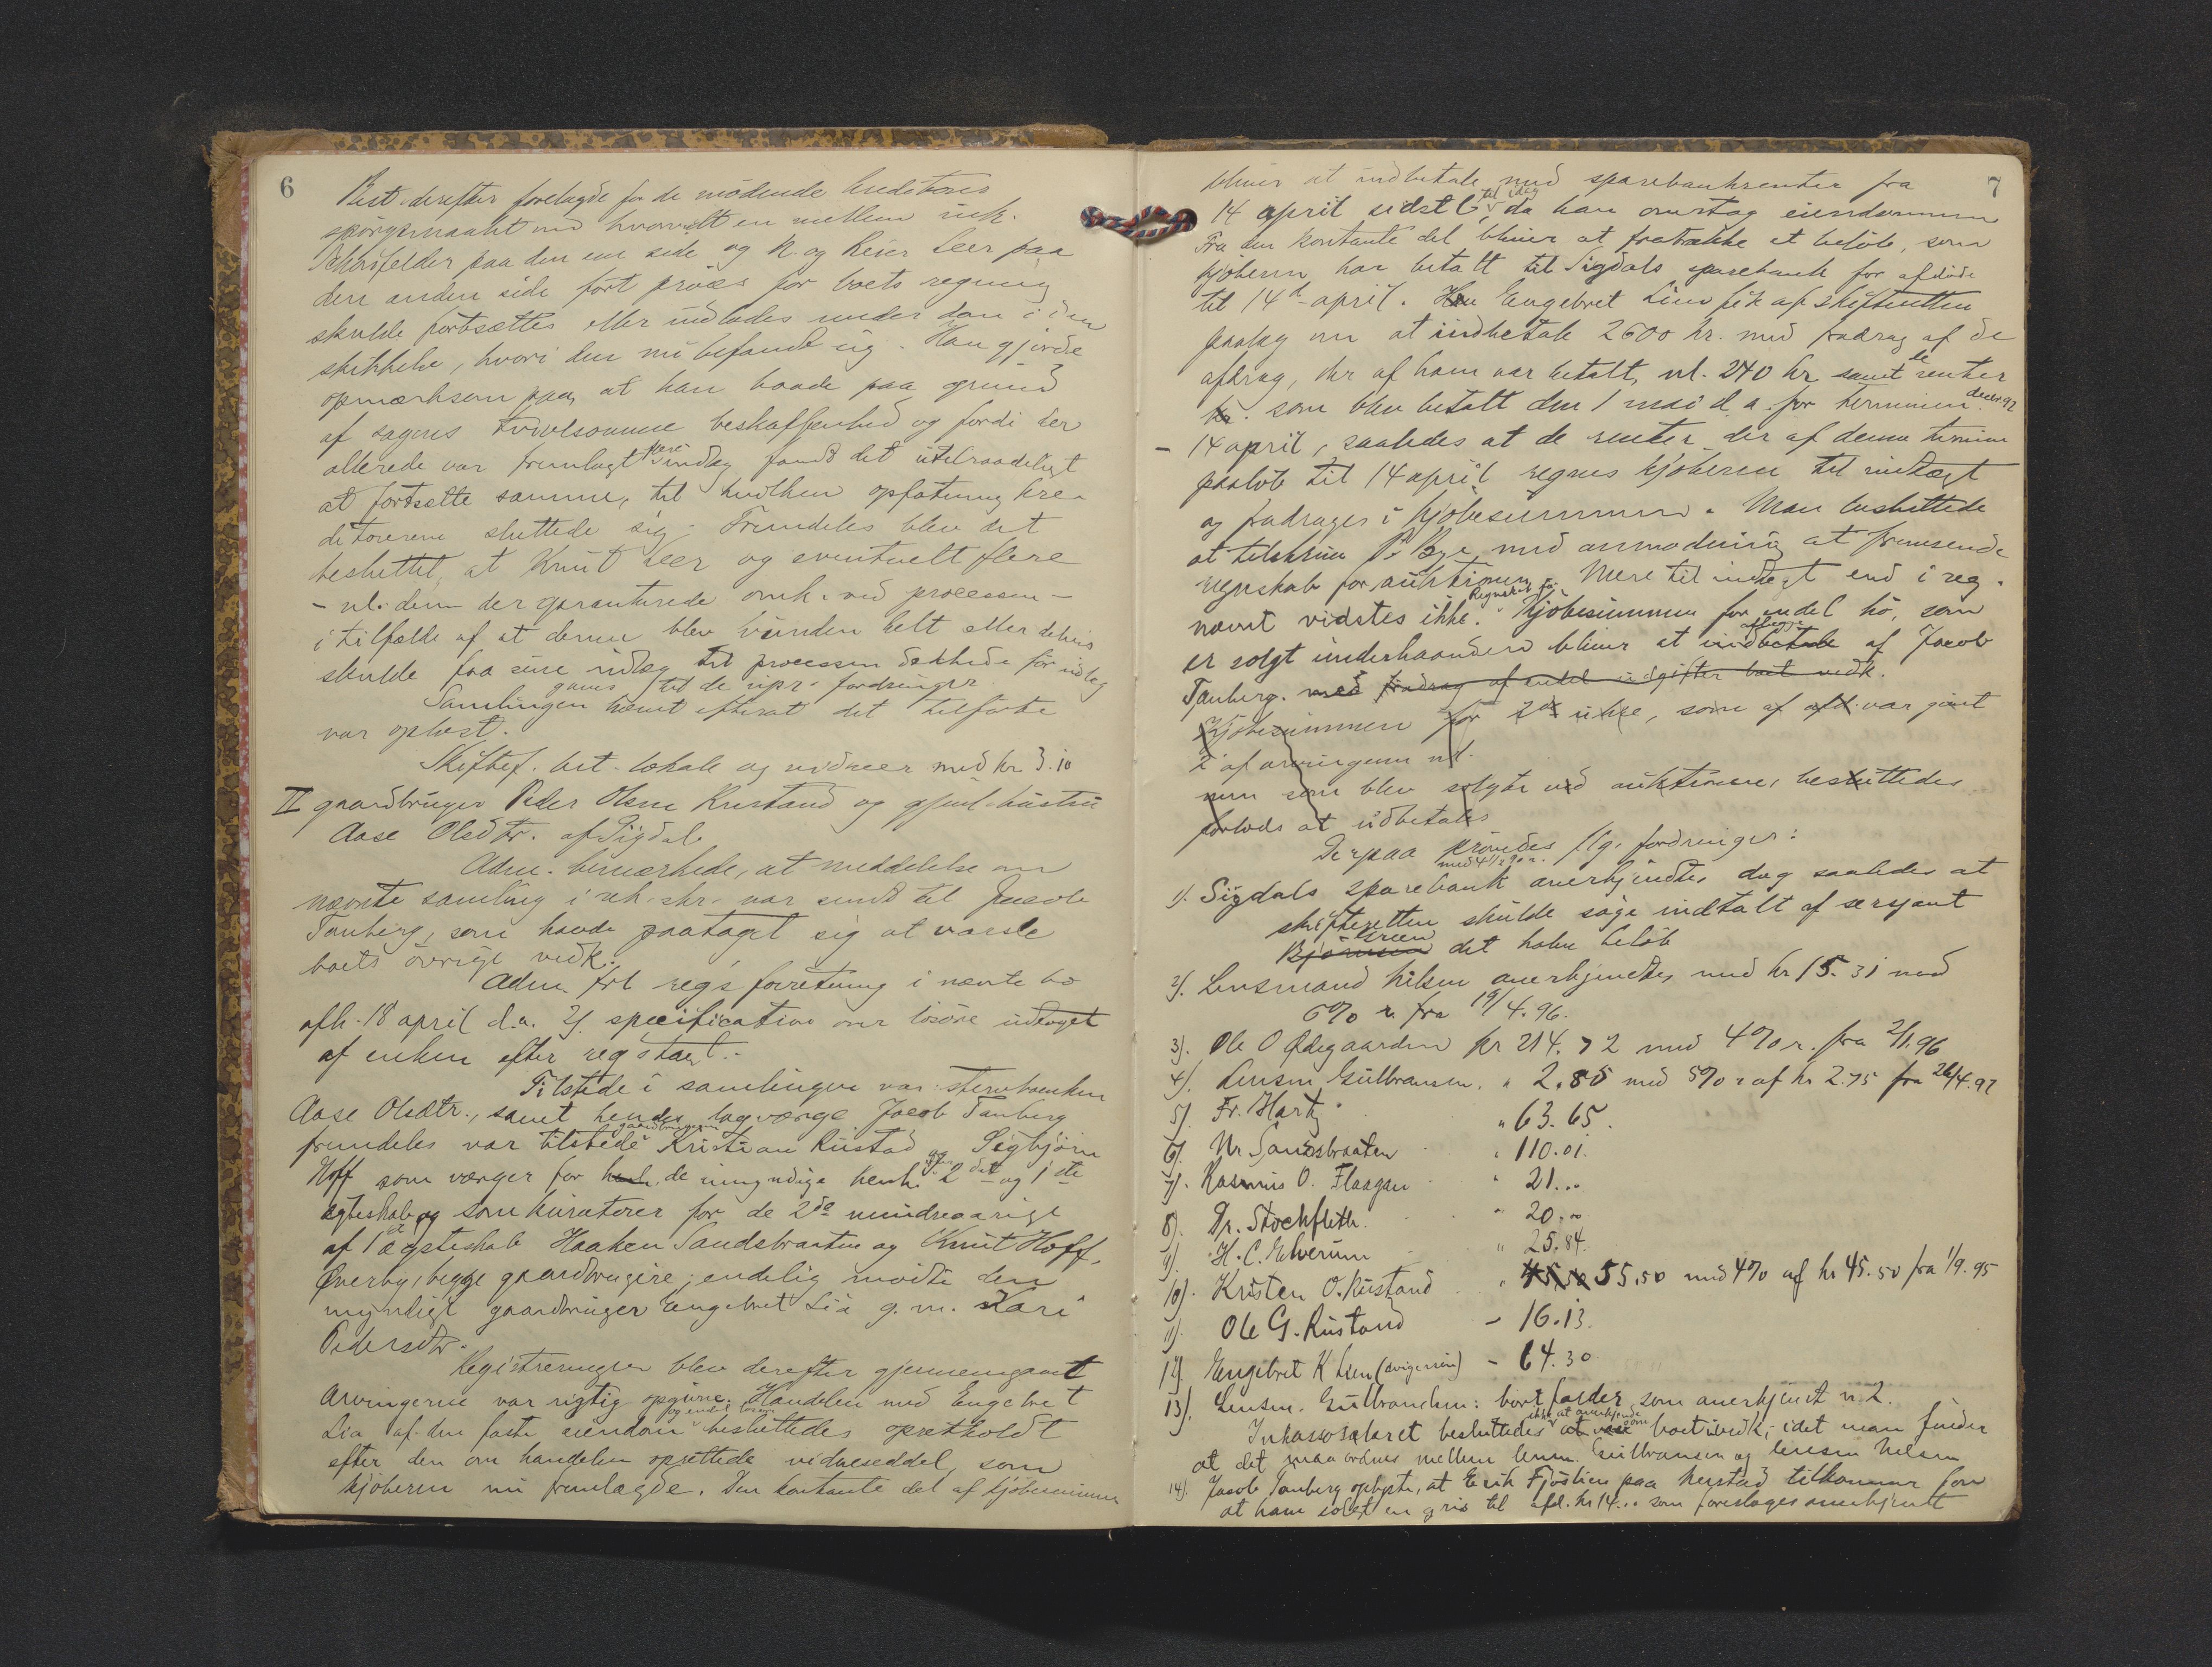 6
Best. derefter forelagde for de mødende kreditores
spörgsmaalet om hvorvidt en mellem
paa den ene side og N. og Reier Leer paa
den anden side fört proces for boets regning
skulde fortsættes eller indlades under den i den
skikkelse, hvori den nu befandt sig. Han gjorde
opmærksom paa, at han baade paa grund
af sagens tvivlsomme beskaffenhed og fordi der
allerede var fremlagt indlæg fandt det utilraadeligt
at fortsætte samme, til hvilken opfatning kre-
ditorerne sluttede sig. Fremdeles blev det
besluttet, at Knut Leer og eventuelt flere
- nl. dem der garanterede omk. ved processen -
i tilfælde af at denne blev vunden helt eller delvis
skulde faa sine udlæg til processen dækkede för udlæg
gives til de upr. fordringer
Samlingen hævet efterat det tilförte
var oplæst.
Skiftef. bet. lokale og vidner med kr 3.10
II gaardbruger Peder Olsen Rustand og gjenl. hustru
Aase Olsdtr. af Sigdal.
Adm. bemærkede, at meddelelse om
nævnte samling i rek. skr. var sendt til Jacob
Tanberg, som havde paataget sig at varsle
boets övrige vedk.
Adm. frl. reg's forretning i nævnte bo
afh. 18 april d.a. 2/. specification over lösöre udtaget
af enken efter reg's taxt.-
Tilstede i samlingen var stervboenken
Aase Olsdtr., samt hendes lagværge Jacob Tanberg
fremdeles var tilstede gaardbrugerne Kristian Rustad og Sigbjörn
Hoff som værger for de umyndige henh. af 2det og 1ste
ægteskab og som kuratorer for de 2de mindreaarige
af 1ste ægteskab Haaken Sandsbraaten og Knut Hoff,
Øverby, begge gaardbrugere; endelig mødte den
myndige gaardbruger Engebret Lia g.m. Kari
Pedersdtr.
Registreringen blev derefter gjennemgaaet
Arvingerne var rigtig opgivne. Handelen med Engebret
Lia af den faste eiendom og endel lösöre besluttedes opretholdt
efter den om handelen oprettede vidneseddel, som
kjøberen nu fremlagde. Den kontante del af kjøbesummen
7
bliver at indbetale med sparebankrenter fra
14 april sidstl. til idag, da han overtog eiendommen
Fra den kontante del bliver at fratrække et beløb, som
kjøberen har betalt til Sigdals sparebank for afdöde
til 14de april. Engebret Lien fik af skifteretten
paalæg om at indbetale 2600 kr. med fradrag af de
afdrag, der af ham var betalt, nl. 240 kr samt de renter
kr. som blev betalt den 1 mai d.a. for terminen decbr 92
- 14 april, saaledes at de renter der af denne termin
paalöb til 14 april regnes kjøberen til indtægt
og fradrages i kjøbesummen. Man besluttede
at tilskrive P. Bye med anmodning at fremsende
regnskab for auktionen. Mere til indtægt end i reg.
nævnt vidstes ikke. Regnskab for kjøbesummen for endel hö, som
er solgt underhaanden bliver at aflægge af Jacob
Tanberg. med fradrag af endel udgifter boet vedk.
Kjøbesummen for 2de ukse, som af afd. var givet
2 af arvingerne nl.
men som blev solgte ved auktionen, besluttedes
forlods at udbetales
Derpaa prövedes flg. fordringer:
1). Sigdals sparebank med 4 1/2 % r. anerkjendtes dog saaledes at
skifteretten skulde söge indtalt af sersjant
Björnsen det halve belöb
2). Lensmand Nilsen anerkjendtes med kr 15.31 med
5% r. fra 19/4.96.
3). Ole O Ødegaarden kr 214.72 med 4% r. fra 2/1.96
4). Lensm. Gulbransen. " 2.85 med 5% r af kr 2.75 fra 26/4.97
5). Fr. Hartz " 63.65.
6). Nr Sandsbraaten " 110.01.
7). Rasmus O. Flaagan " 21...
8). Dr. Stockfleth. " 20.00
9). H.C. Elverum " 25.84.
10). Kristen O. Rustand " 45,50 55,50 med 4% af kr 45.50 fra 1/9.95
11). Ole G. Rustand - 16.13.
12). Engebret K Lien (svigersøn) - 64.30
13). Lensm. Gulbransen: bortfalder som anerkjendt nr 2.
Inkassosalæret besluttedes ikke at anerkjende som boet vedk., idet man finder
at det maa ordnes mellem lensm. Gulbransen og lensm Nilsen
14). Jacob Tanberg oplyste, at Erik Fjöslien paa Nerstad tilkommer for
at have solgt en gris til afd. kr 14... som foreslages anerkjendt